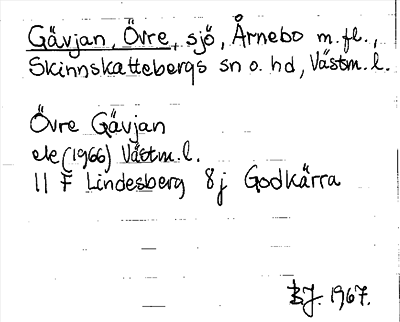 Gävjan, Övre, sjö, Årnebo m.fl.,
Skinnskattebergs sn o. hd, Västm.l.
Övre Gävjan
ele (1966) Västm.l.
11 F Lindesberg 8j Godkärra
BJ. 1967.